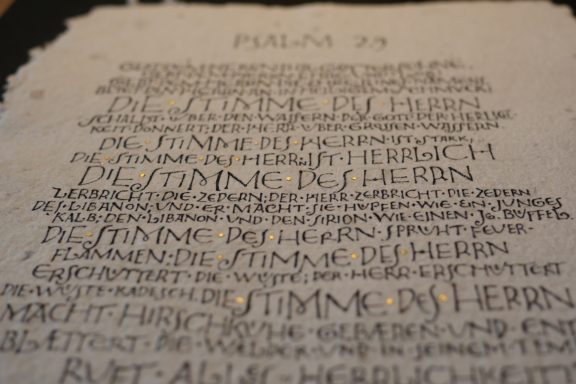 PSALM 29
DIE·STIMME·DES·HERRN
SCHALLT·UBER·DEN·WASSERN·DER·GOTT·DER·HERLIG
KEIT·DONNERT; DER·HERR·UBER·GROSSEN·WASSERN·
DIE·STIMME·DES·HERRN·IST·STARK,
DIE·STIMME·DES·HERRN·IST·HERRLICH
DIE·STIMME·DES·HERRN
ZERBRICHT·DIE·ZEDERN; DER·HERR·ZERBRICHT·DIE·ZEDERN
DES·LIBANON·UND·ER·MACHT·SIE·HUPFEN·WIE·EIN·JUNGES
KALB; DEN·LIBANON·UND·DEN·SIRION·WIE·EINEN·JG. BUFFEL·
DIE·STIMME·DES·HERRN·SPRUHT·FEUER-
FLAMMEN: DIE·STIMME·DES·HERRN
ERSCHUTTERT·DIE·WUSTE; DER·HERR·ERSCHUTTERT
DIE·WUSTE·KADESCH. DIE·STIMME·DES·HERRN
MACHT·HIRSCHKUHE·GEBAREN·UND·ENT
BLÆTTERT·DIE·WELDER·UND·IN·SEINEM·TEM
RUFT·ALLES·HERRLICHKEIT